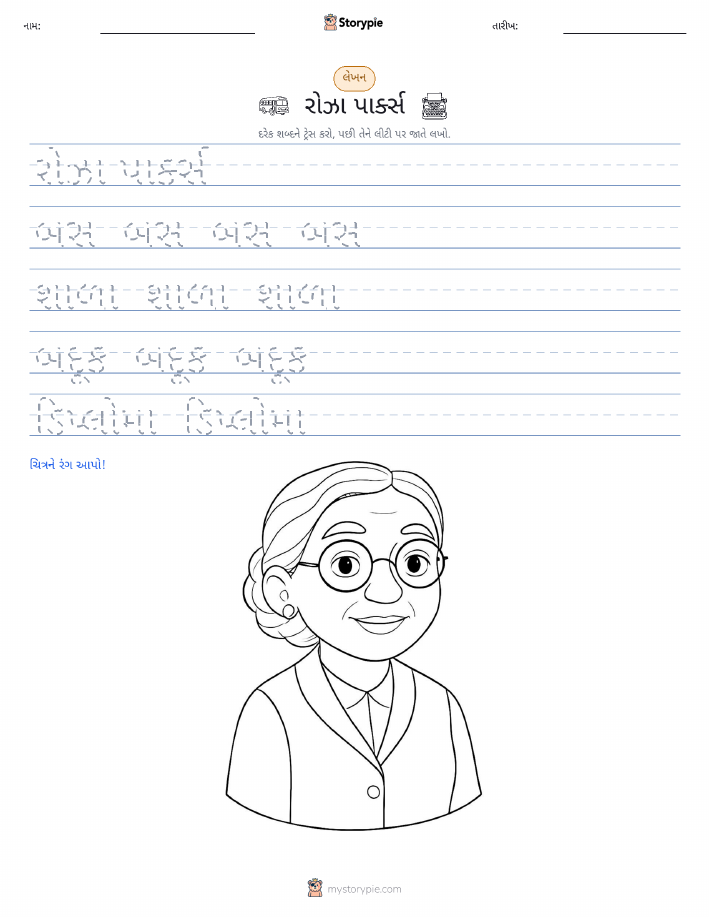 નામ: Storypie તારીખ:
લેખન
રોઝા પાર્ક્સ
દરેક શબ્દને ટ્રેસ કરો, પછી તેને લીટી પર જાતે લખો.
રોઝા પાર્ક્સ
બસ બસ બસ બસ
શાળા શાળા શાળા
બંદૂક બંદૂક બંદૂક
ડિપ્લોમા ડિપ્લોમા
ચિત્રને રંગ આપો!
mystorypie.com